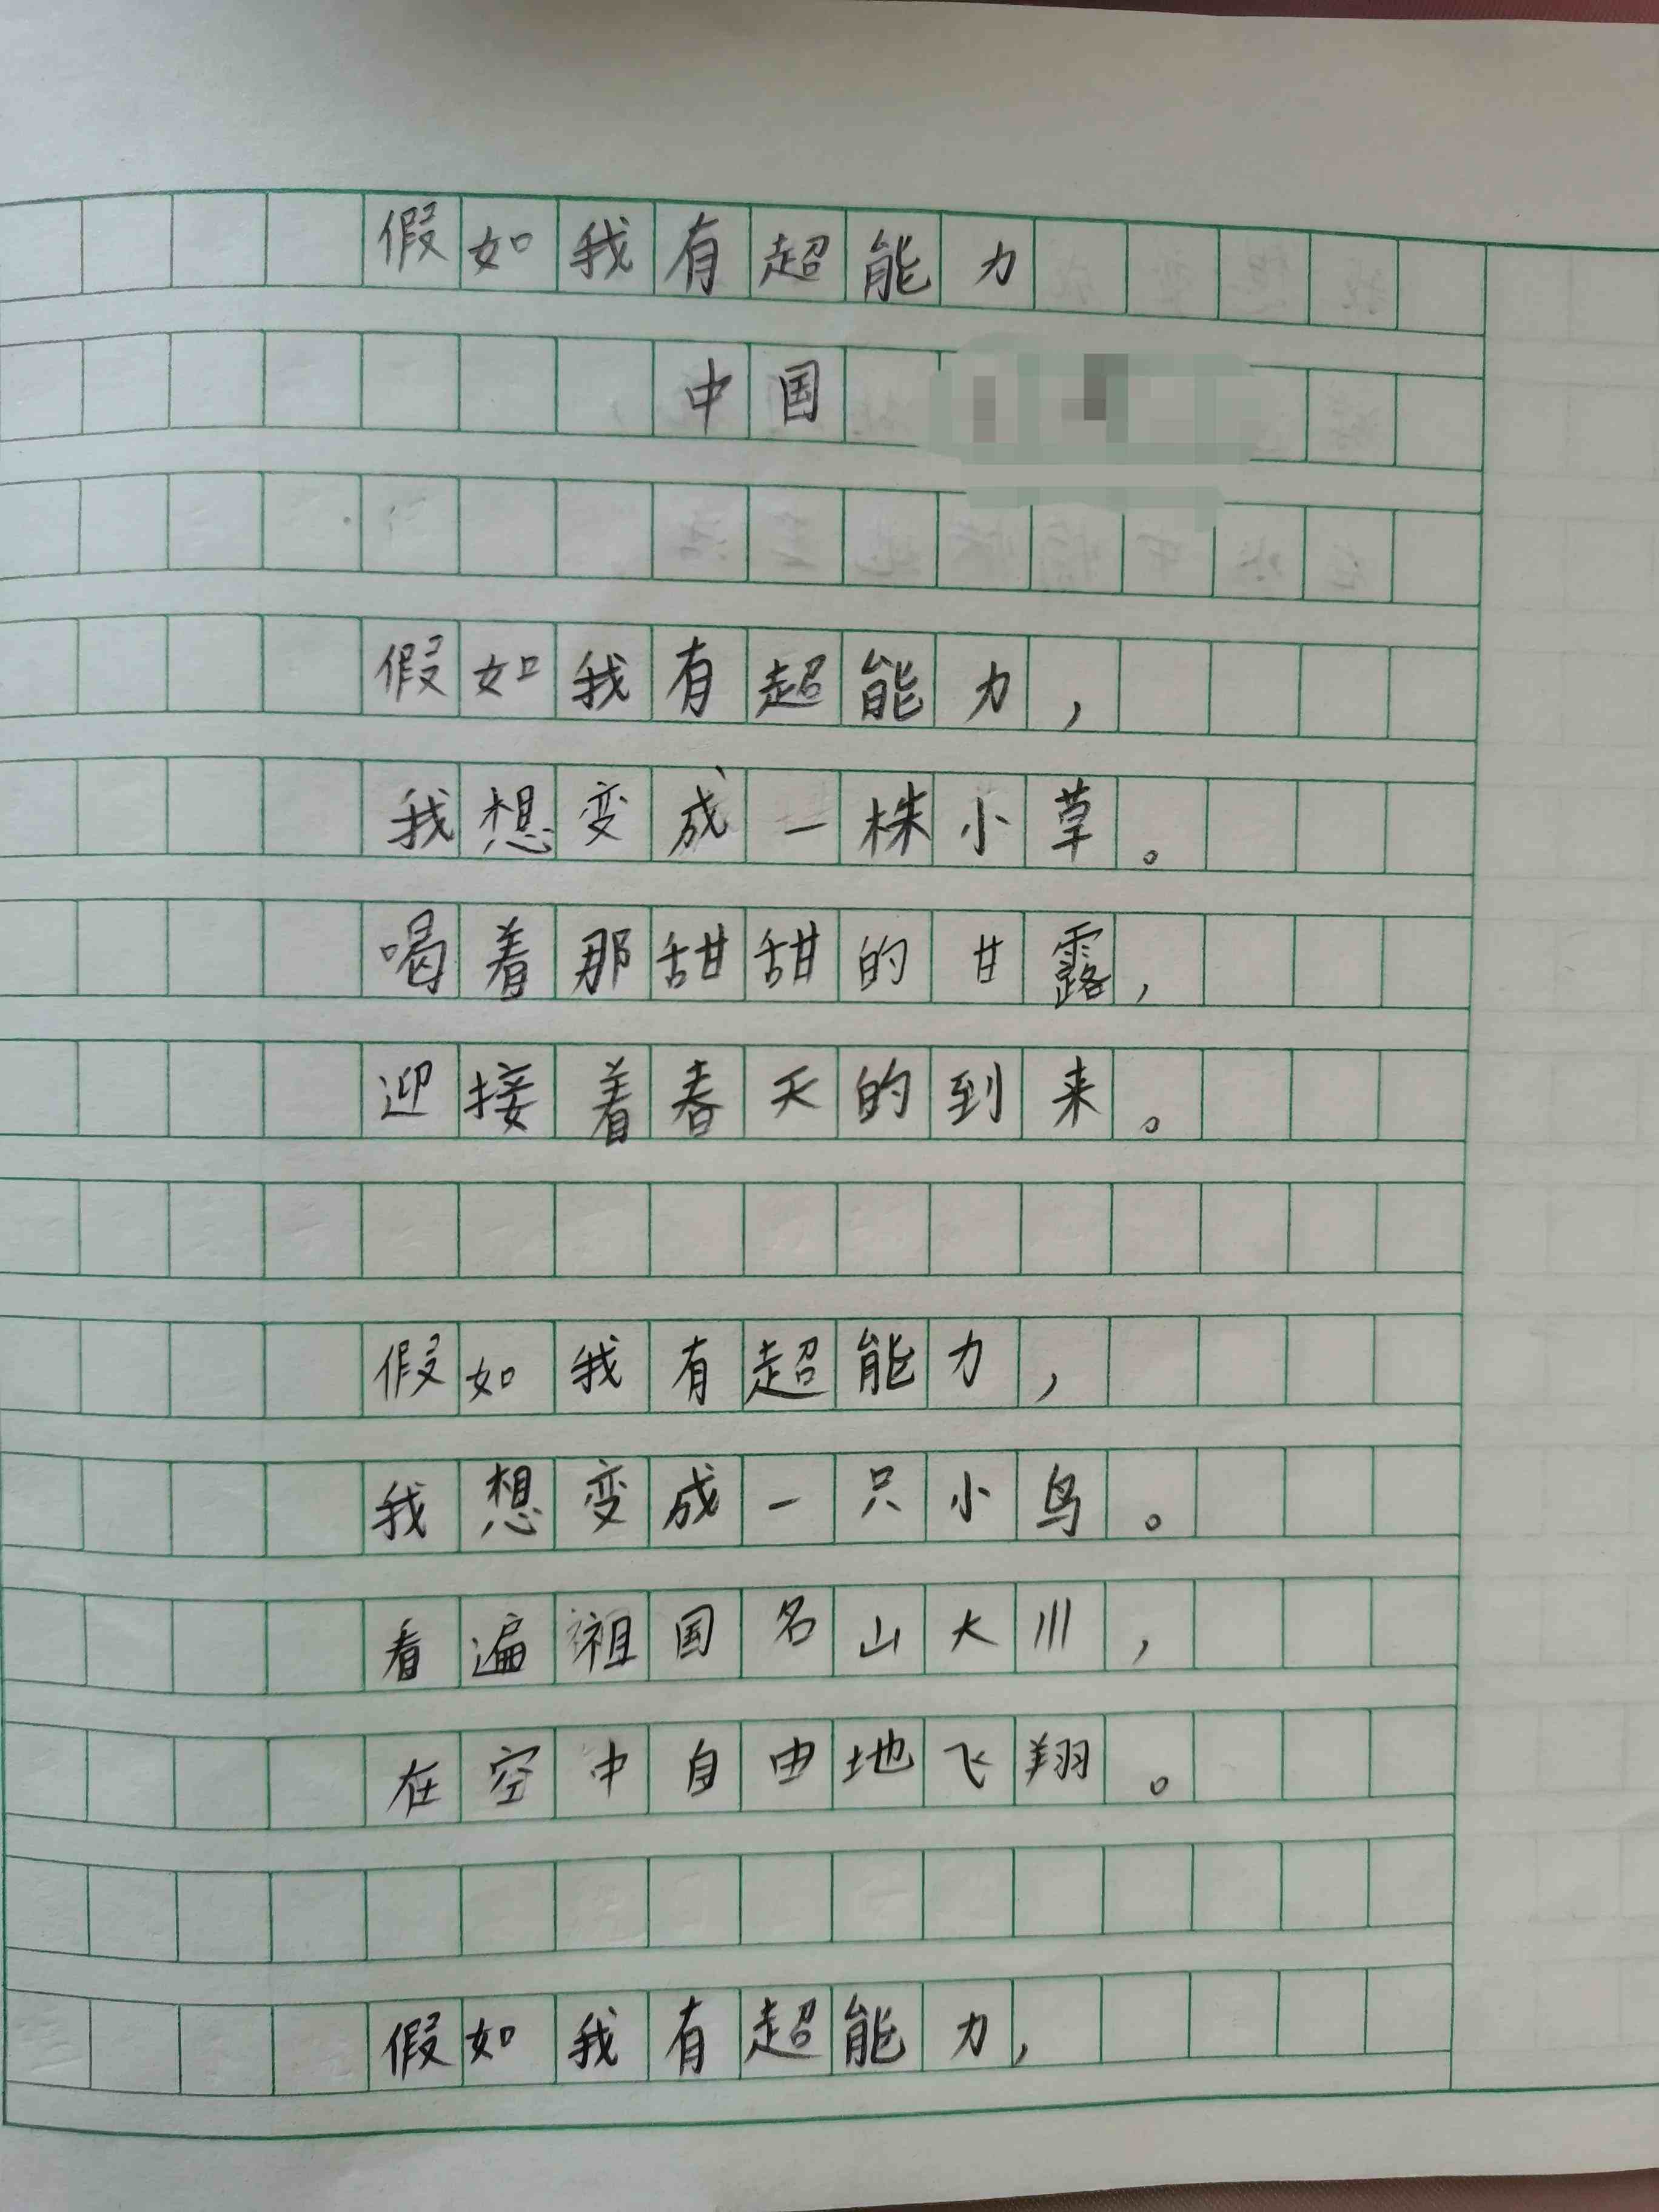 假如我有超能力
中国
假如我有超能力，
我想变成一株小草。
喝着那甜甜的甘露，
迎接着春天的到来。
假如我有超能力，
我想变成一只小鸟。
看遍祖国名山大川，
在空中自由地飞翔。
假如我有超能力，